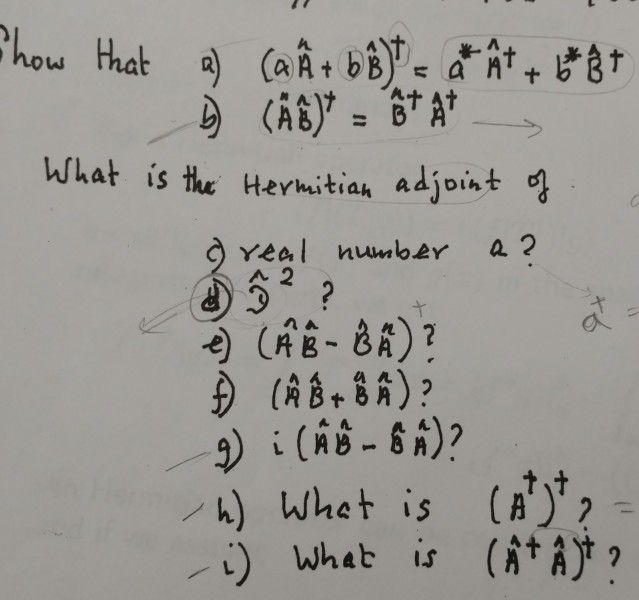 Show that a) (aÂ + bB̂)† = a* Â† + b* B̂†
b) (ÂB̂)† = B̂† Â† →
What is the Hermitian adjoint of
c) real number a?
a† =
d) D̂² ?
e) (ÂB̂ - B̂Â)†?
f) (ÂB̂ + B̂Â)?
g) i(ÂB̂ - B̂Â)?
h) What is (A†)† ? =
i) What is (Â† Â)† ?